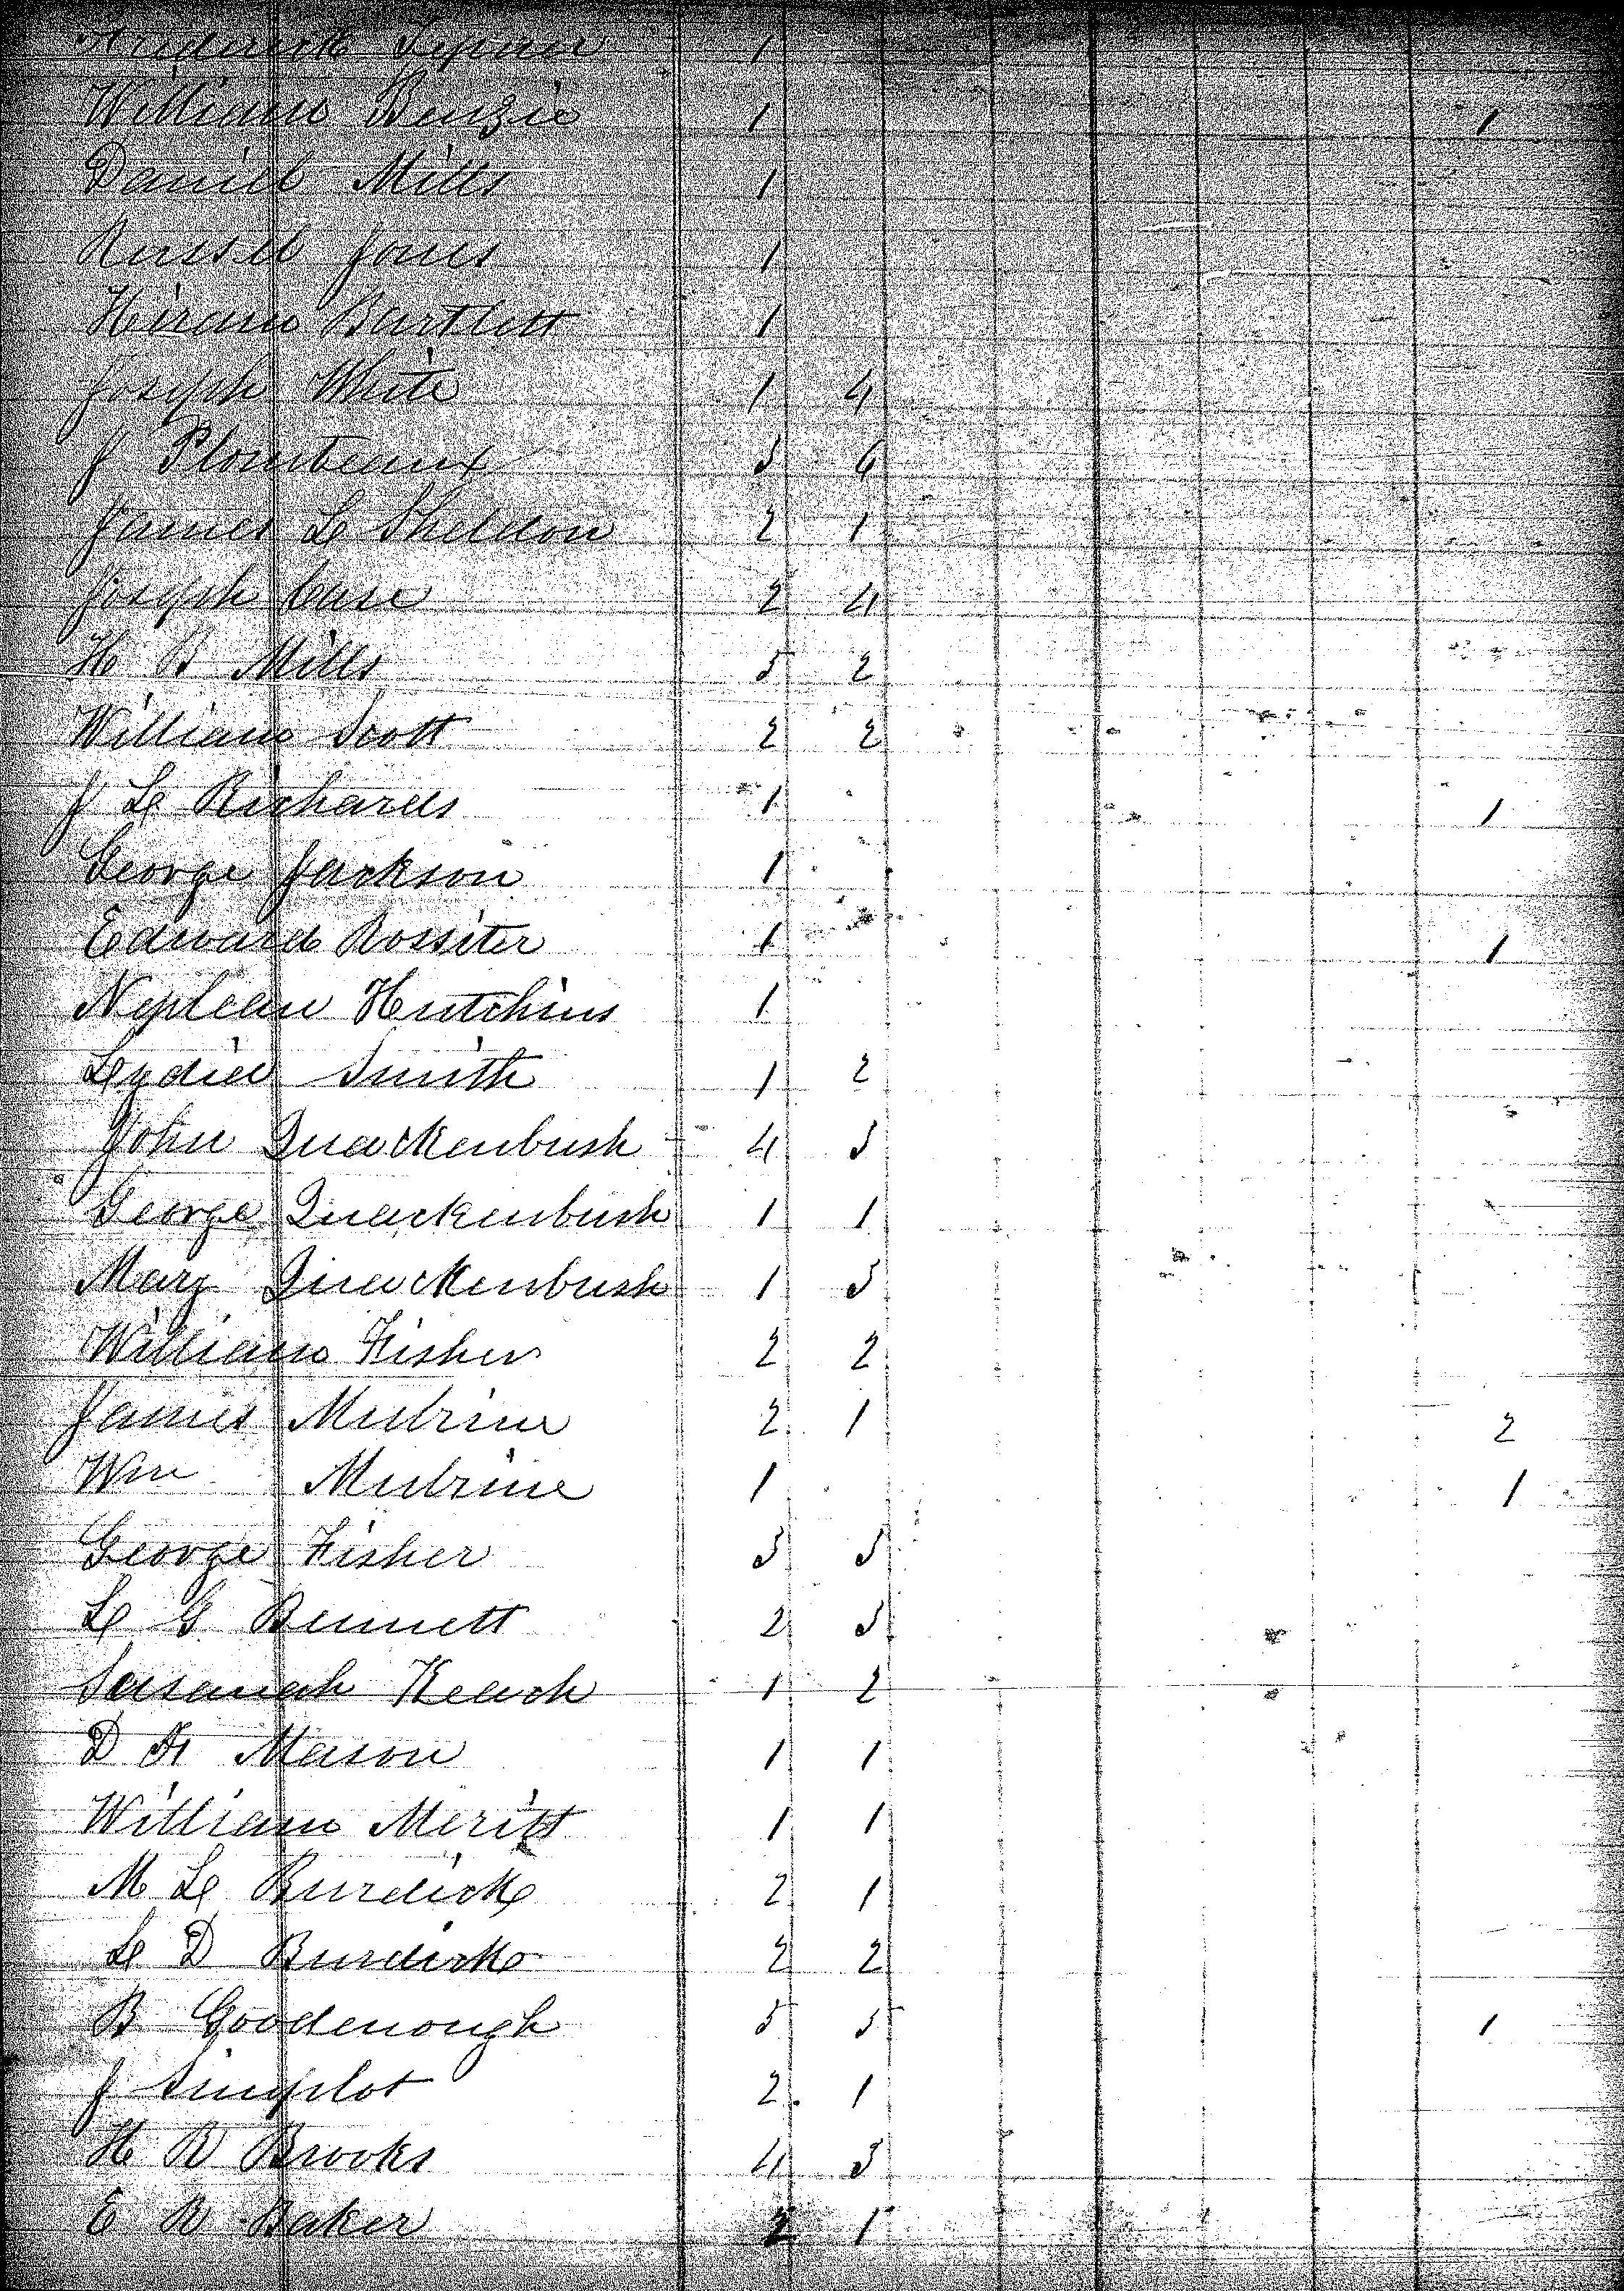 Frederick 1
William Benzie 1 1
Daniel Mills 1
Russel Jones 1
Hiram Bartlett 1
Joseph White 1 4
J Plombeaux 3 6
James L Sheldon 2 1
Joseph Case 2 4
H B Mills 5 2
William Scott 2 2
J L Richards 1 1
George Jackson 1
Edward Rossiter 1 1
Neplean Hutchins 1
Lydia Smith 1 2
John Quackenbush 4 3
George Quackenbush 1 1
Mary Quackenbush 1 3
William Fisher 2 2
James Mulrine 2 1 2
Wm Mulrine 1 1
George Fisher 3 3
L G Bennett 2 3
Susanah Keach 1 2
D H Mason 1 1
William Meritt 1 1
M L Burdick 2 1
L D Burdick 2 2
B Goodenough 5 5 1
J Simplot 2 1
H R Brooks 4 3
E R Baker 2 1